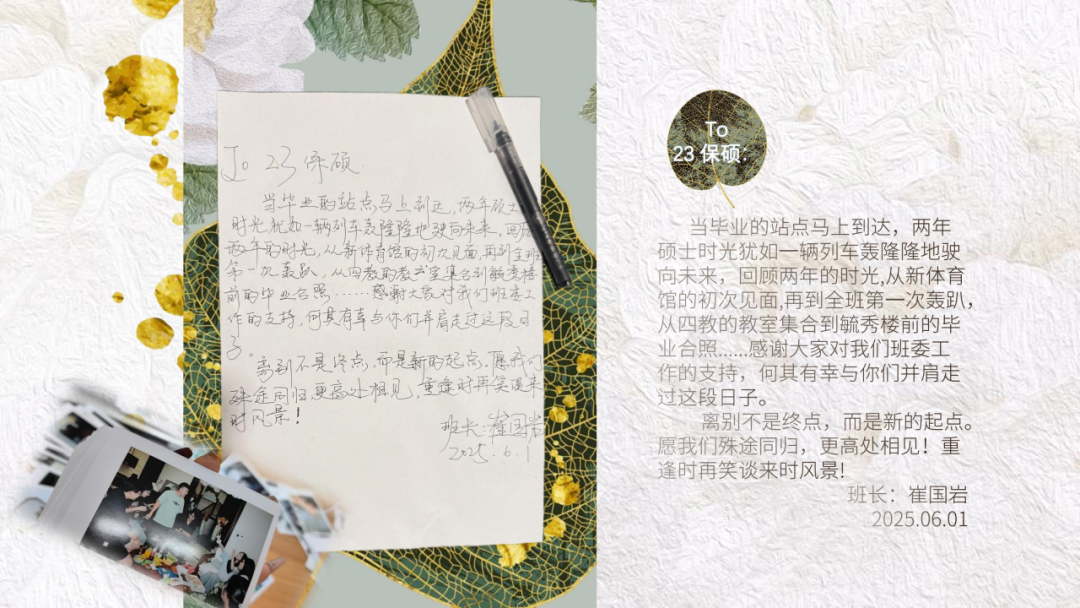 To 23 保硕.
当毕业的站点马上到达,两年硕士
时光犹如一辆列车轰隆隆地驶向未来,回顾
两年的时光,从新体育馆的初次见面,再到全班
第一次轰趴,从四教的教室集合到毓秀楼
前的毕业合照……感谢大家对我们班委工
作的支持,何其有幸与你们并肩走过这段日
子。
离别不是终点,而是新的起点,愿我们
殊途同归,更高处相见,重逢时再笑谈来
时风景!
班长:崔国岩
2025.6.1
To
23 保硕:
当毕业的站点马上到达，两年
硕士时光犹如一辆列车轰隆隆地驶
向未来，回顾两年的时光,从新体育
馆的初次见面,再到全班第一次轰趴，
从四教的教室集合到毓秀楼前的毕
业合照......感谢大家对我们班委工
作的支持，何其有幸与你们并肩走
过这段日子。
离别不是终点，而是新的起点。
愿我们殊途同归，更高处相见！重
逢时再笑谈来时风景!
班长：崔国岩
2025.06.01